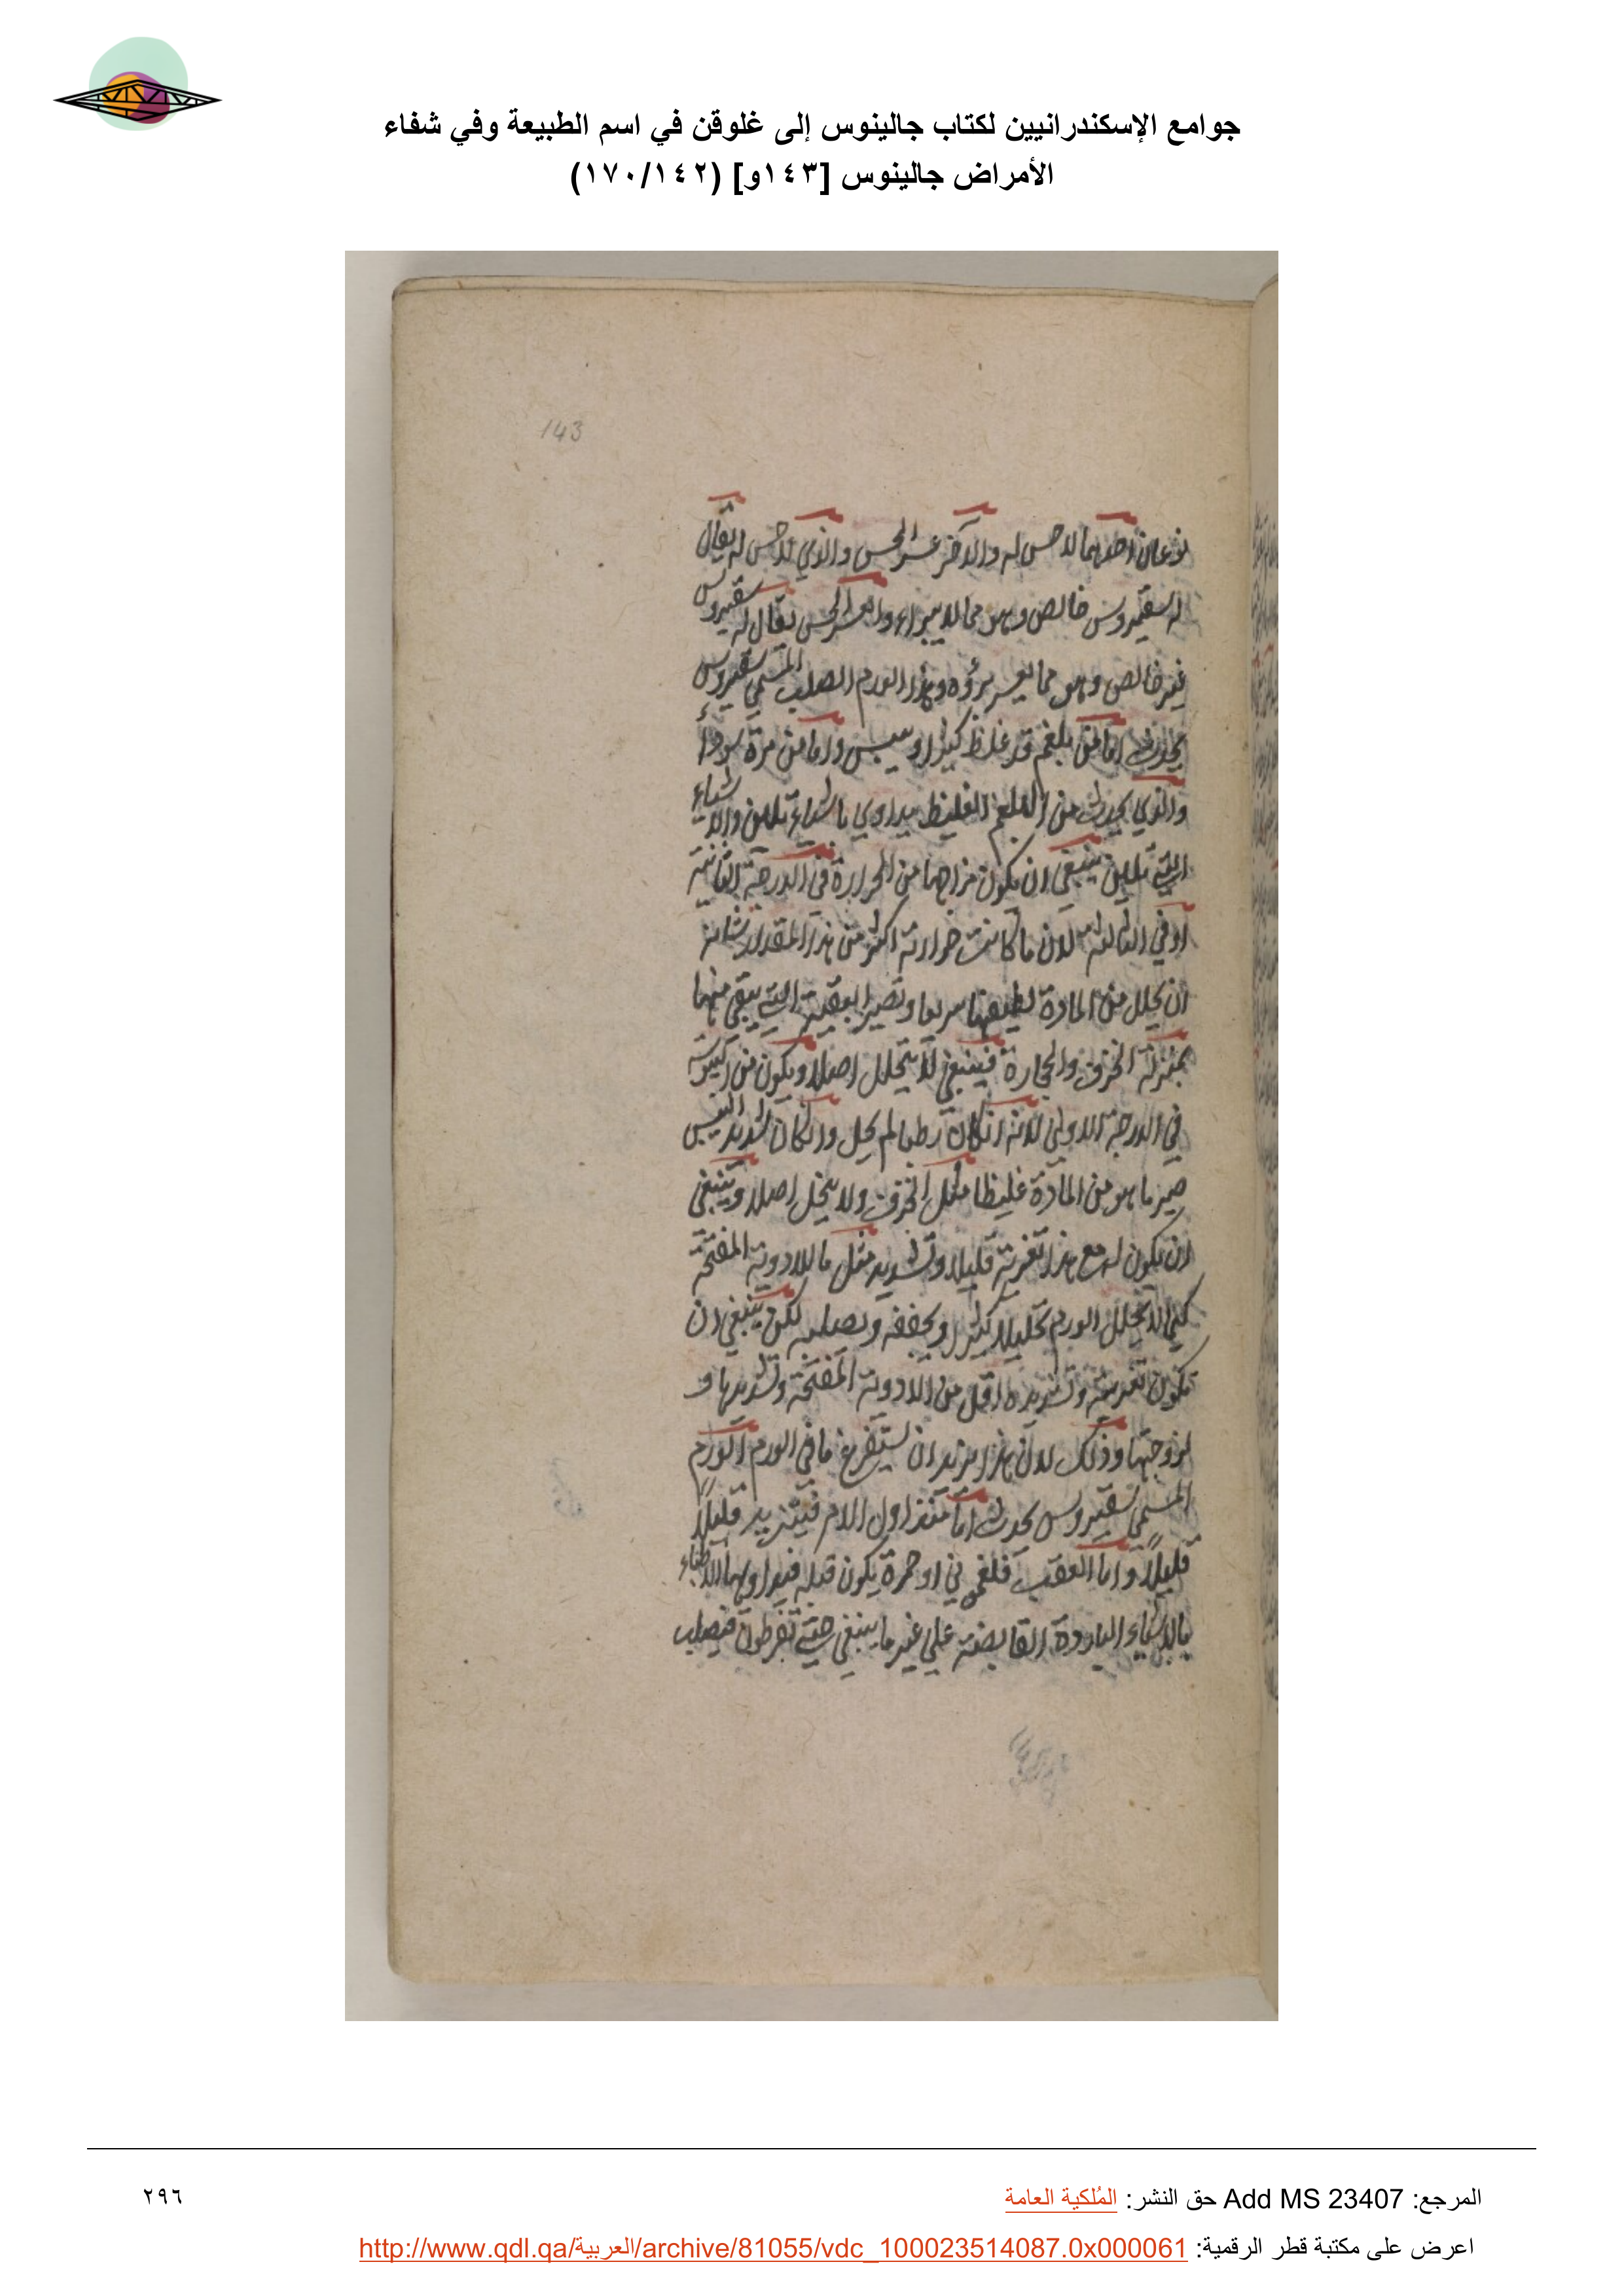 جوامع الإسكندرانيين لكتاب جالينوس إلى غلوقن في اسم الطبيعة وفي شفاء
الأمراض جالينوس [١٤٣و] (١٧٠/١٤٢)
143
نوعان احدهما لا حس له والآخر عسر الحس والذي لا حس له يقال
له سقيروس خالص وهو مما لا يبراء والعسر الحس يقال له سقيروس
غير خالص وهو مما يعسر برؤه وهذا الورم الصلب المسمي سقيروس
يحدث اما من بلغم قد غلظ كثيرا ويبس واما من مرة سوداء
والذي يحدث من البلغم الغليظ يداوي باشياء تلين والاشياء
التي تلين ينبغي ان يكون مزاجها من الحرارة في الدرجة الثانية
او في الثالثة لان ما كانت حرارته اكثر من هذا المقدار شانه
ان يحلل من المادة لطيفها سريعا وتصير البقية التي يبقي منها
بمنزلة الخزف والحجارة فينبغي لا يتحلل اصلا ويكون من
في الدرجة الاولي لانه ان كان رطبا لم يحل وان كان شديد اليبس
صير ما هو من المادة غليظا مثل الخزف ولا يتحلل اصلا وينبغي
ان يكون له مع هذا تغرية قليلا وتسديد مثل ما للادوية المفتحة
كي لا يحلل الورم تحليلا كثيرا ويجففه ويصلبه لكن ينبغي ان
تكون تغريته وتسديده اقل من الادوية المفتحة وتسديدها و
لزوجتها وذلك لان هذا يريد ان يستفرغ ما في الورم الورم
المسمي سقيروس يحدث اما منذ اول الامر فيتزيد قليلاً
قليلاً واما العقب فلغموني او حمرة يكون قبله فيداويها الاطباء
بالاشياء الباردة القابضة علي غير ما ينبغي حتي تفرطون فيصلب
المرجع: Add MS 23407 حق النشر: المُلكية العامة
٢٩٦
اعرض على مكتبة قطر الرقمية: http://www.qdl.qa/العربية/archive/81055/vdc_100023514087.0x000061